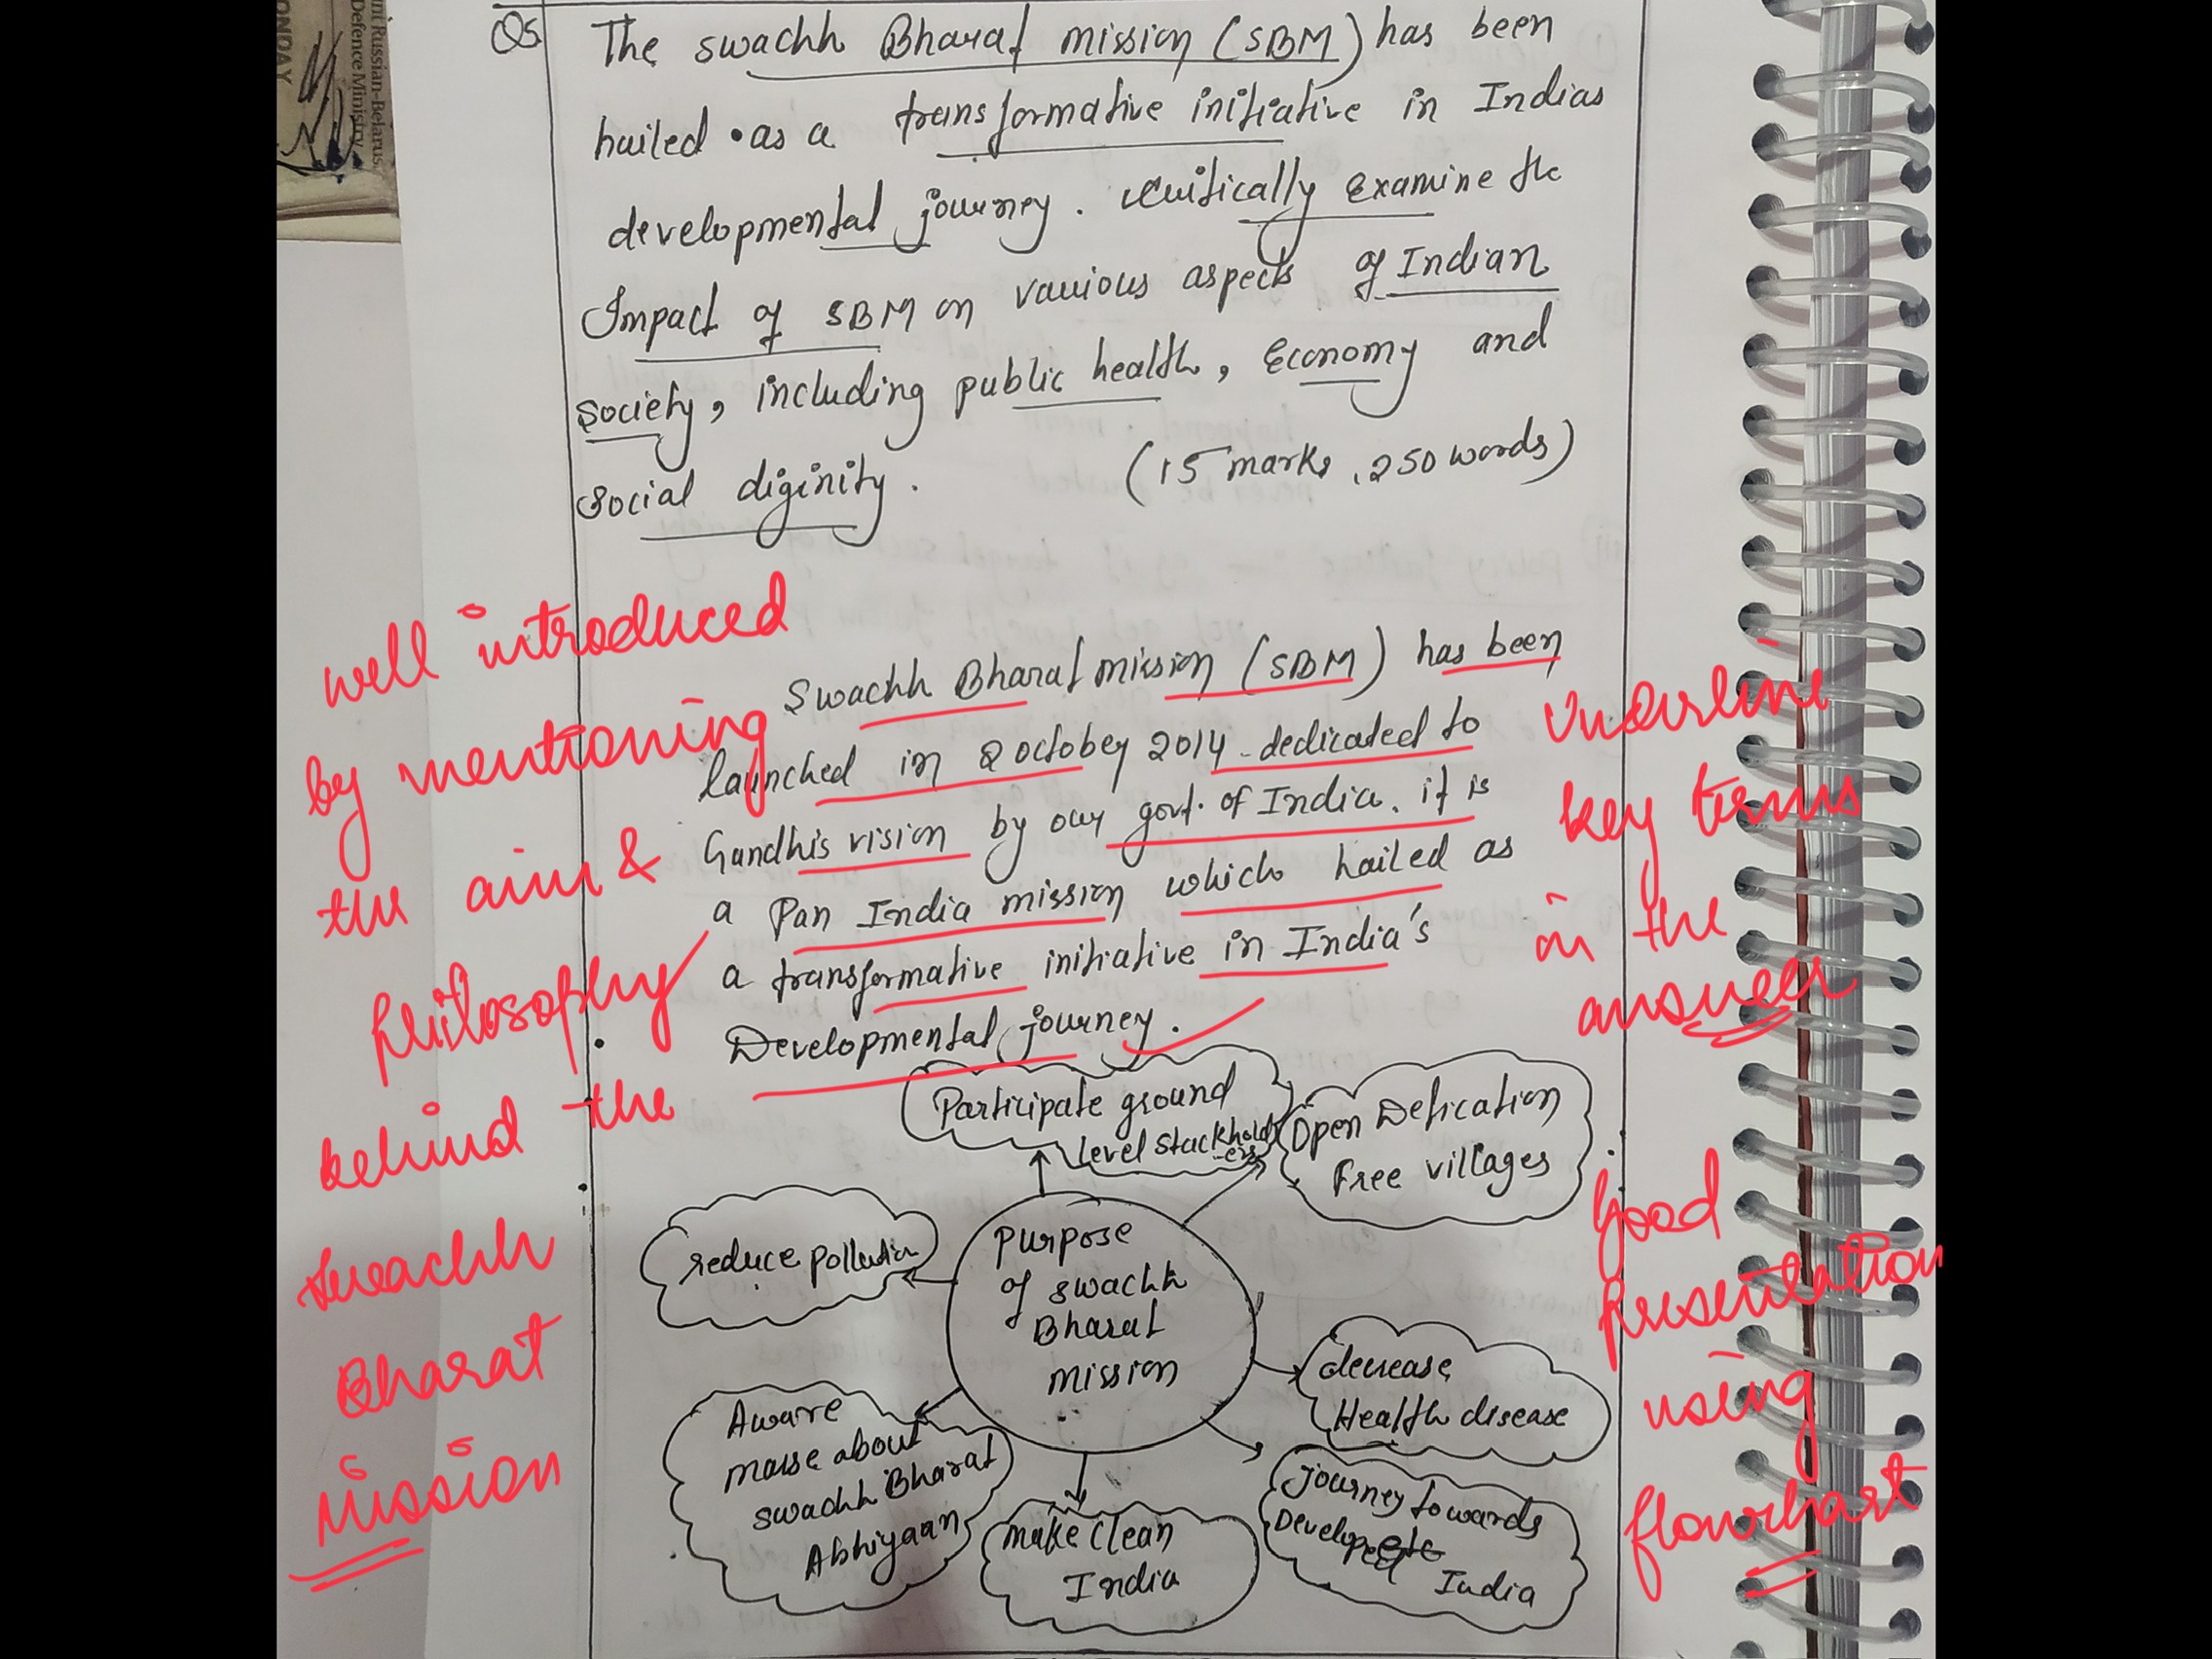 nt Russian-Belarus.
Defence Ministry
ONDAY
Q5
The swachh Bharat mission (SBM) has been
hailed as a transformative initiative in Indias
developmental journey. critically examine the
Impact of SBM on various aspects of Indian
society, including public health, Economy and
social diginity. (15 marks, 250 words)
Swachh Bharat mission (SBM) has been
launched in 2 october 2014 dedicated to
Gandhi's vision by our govt. of India. it is
a Pan India mission which hailed as
a transformative initiative in India's
Developmental journey.
well introduced
by mentioning
the aim &
philosophy
behind the
swachh
Bharat
Mission
Underline
key terms
in the
answer
Participate ground
level stackhold
ers
Open Defication
Free villages
reduce pollution
purpose
of swachh
Bharat
mission
decrease
Health disease
Aware
mase about
swachh Bharat
Abhiyaan
make clean
India
journey towards
Developed
India
Good
presentation
using
flowchart